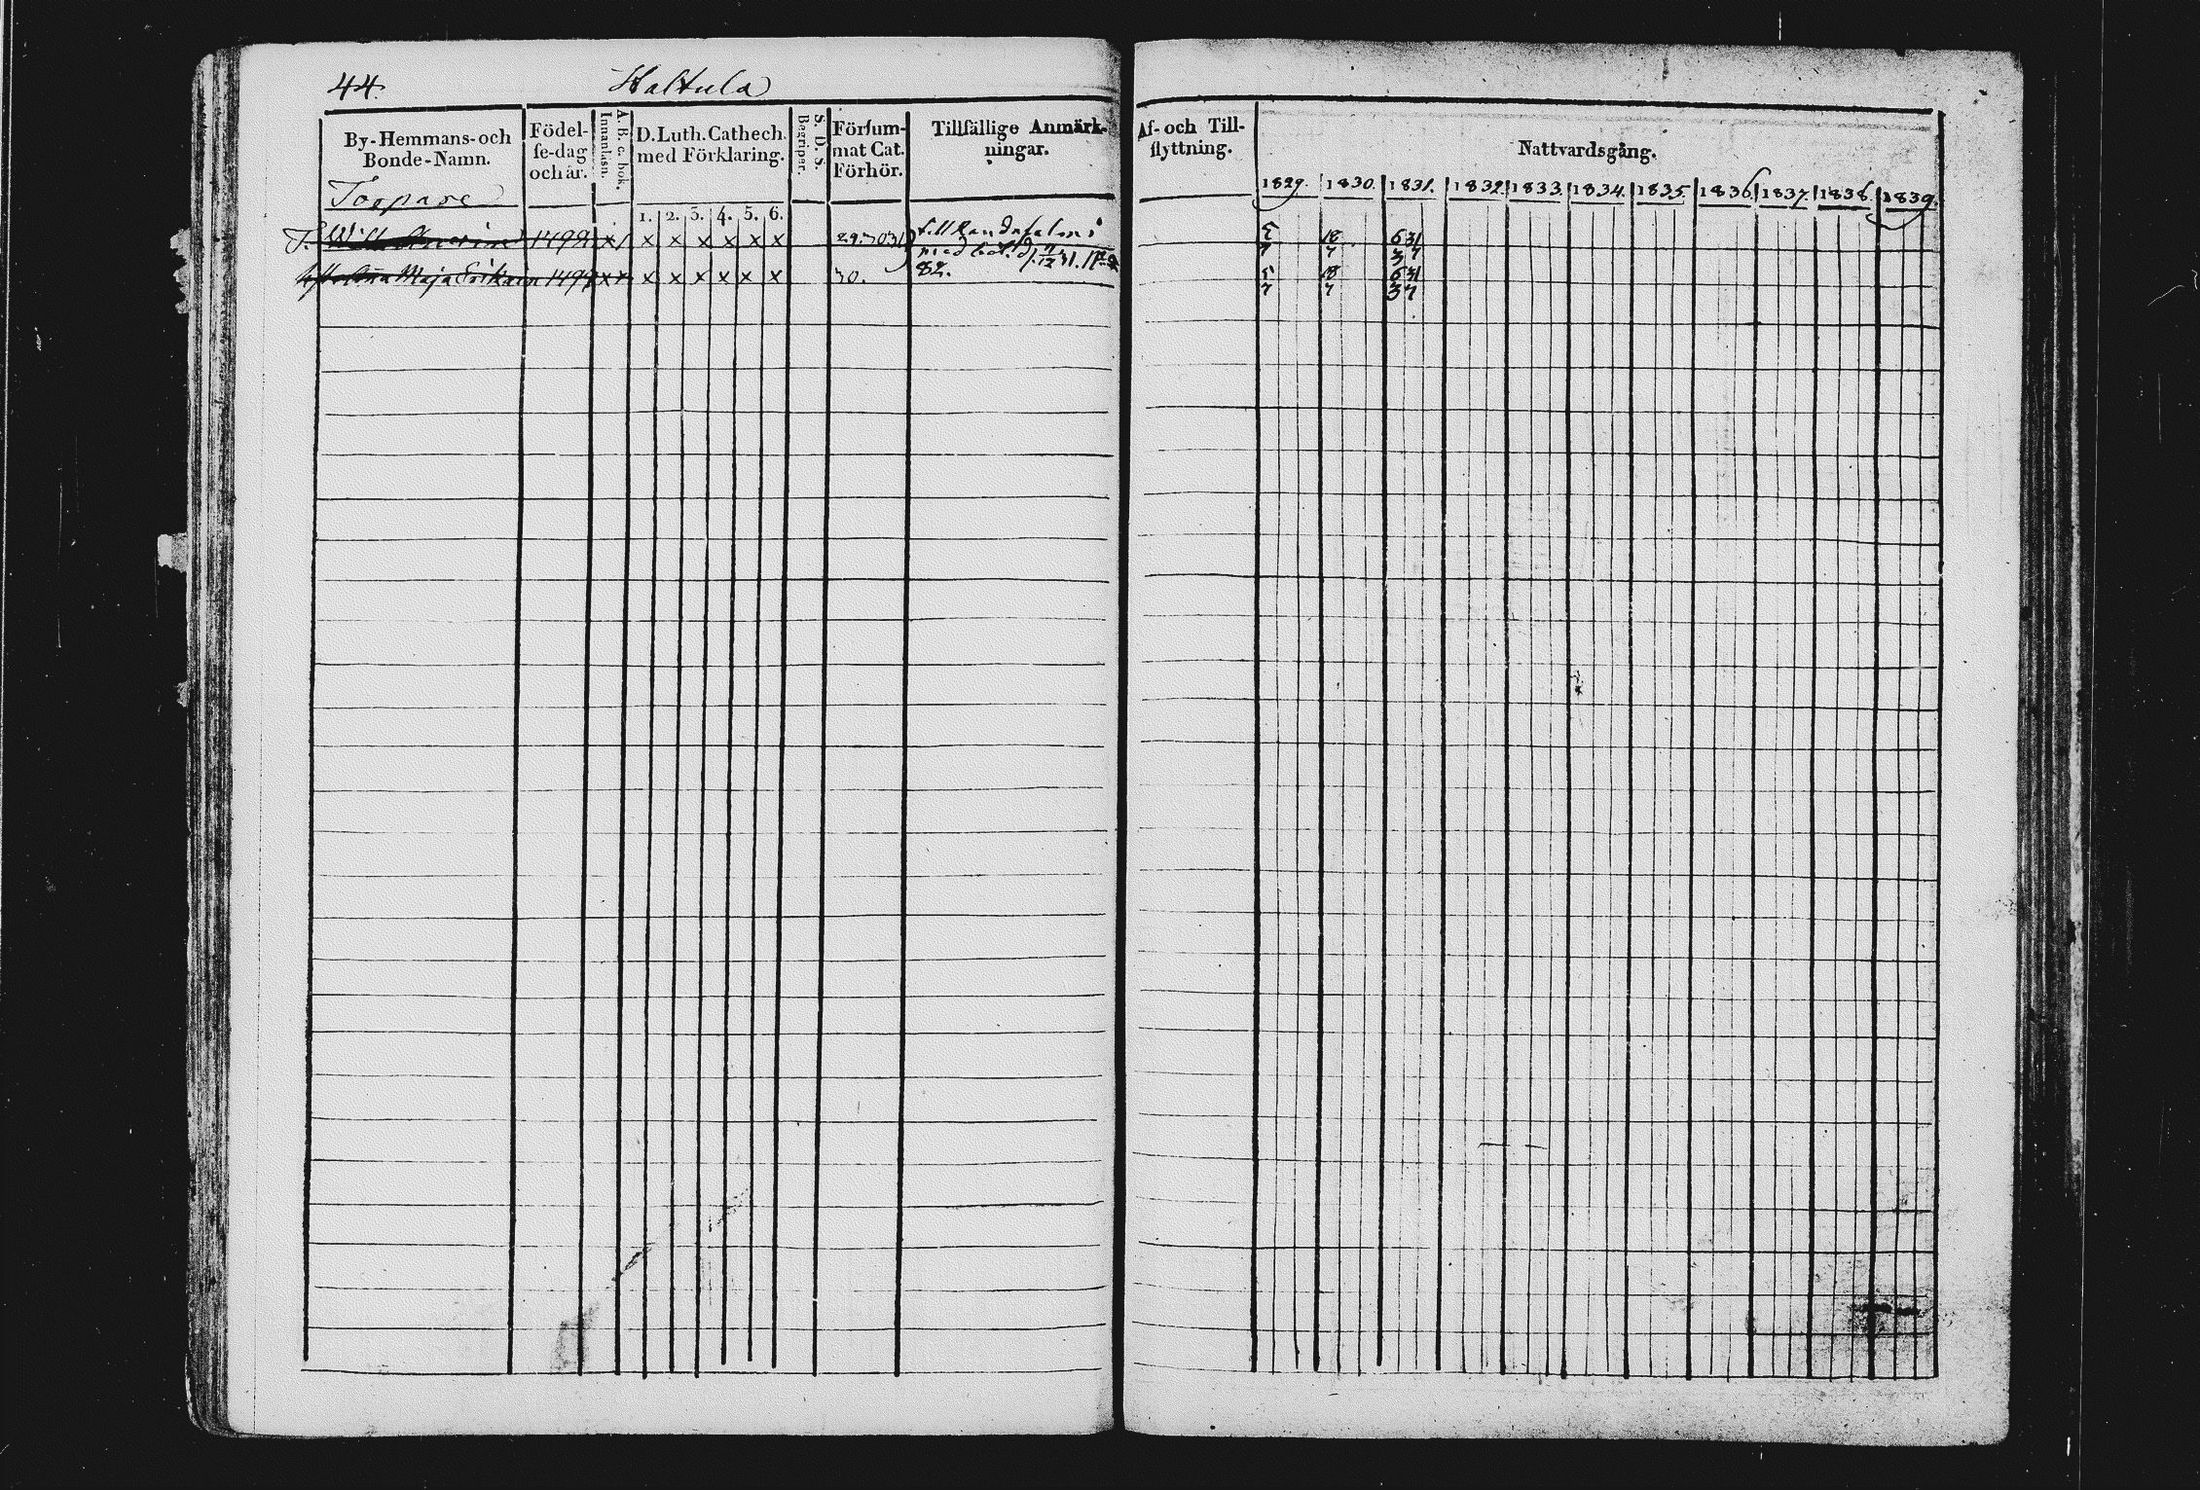 44. Haltula
By-Hemmans- och Bonde-Namn.
Födel-se-dag och år.
A. B. c. bok.
Innanläsn.
D. Luth. Cathech. med Förklaring.
S. D. S.
Begriper.
Försum-mat Cat. Förhör.
Tillfällige Anmärk-ningar.
Af- och Till-flyttning.
Nattvardsgång.
Torpare
1. 2. 3. 4. 5. 6.
1829. 1830. 1831. 1832. 1833. 1834. 1835. 1836. 1837. 1838. 1839.
T. 1799 x x x x x x 29. 30 31 till
5 18 6 31
7 7 3 7
Maja 1799 x x x x x x x x 30. 82.
5 18 6 31
7 7 3 7